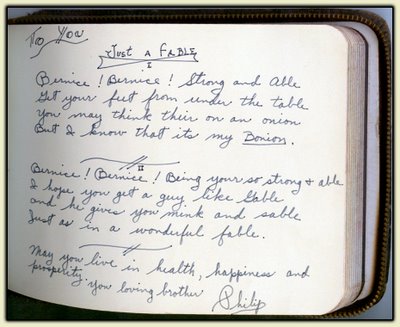 To You
Just a Fable
I
Bernice! Bernice! Strong and Able
Get your feet from under the table
You may think their on an onion
But I know that its my Bonion.
II
Bernice! Bernice! Being your so strong & able
I hope you get a guy, like Gable
and he gives you mink and sable
Just as in a wonderful fable.
May you live in health, happiness and
prosperity. You loving brother
Philip